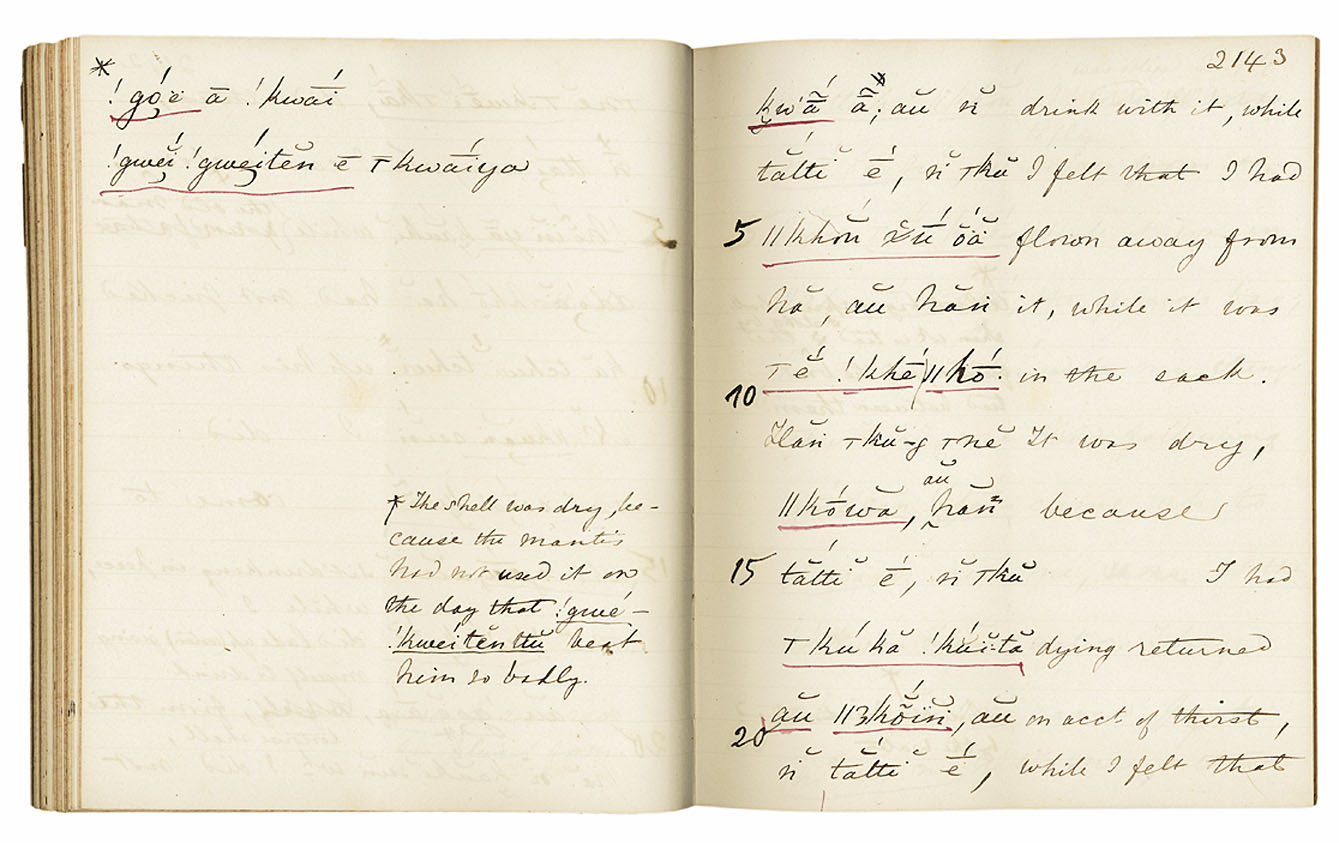 *
!góe ā !kwaí
!gwéi !gwéitĕn ē ⊤kwaíya
* The shell was dry, be-
cause the mantis
had not used it on
the day that !gwé-
!kweitĕnttŭ beat
him so badly.
2143
kwā́ ā̆*; aŭ n̆ drink with it, while
tā́tti ĕ é, n̆ ⊤kŭ I felt that I had
5 flown away from
hă, aŭ hăn it, while it was
10 ⊤é !khé ǁkó. in the sack.
Hăn ⊤kŭ-g ⊤nĕ It was dry,
ǁkówă, aŭ hăn because
15 tā́ttĭ é, n̆ ⊤kŭ I had
⊤kúkă !kúĭtă dying returned
aŭ on acct of thirst,
20 n̆ tā́ttĭ é, while I felt that